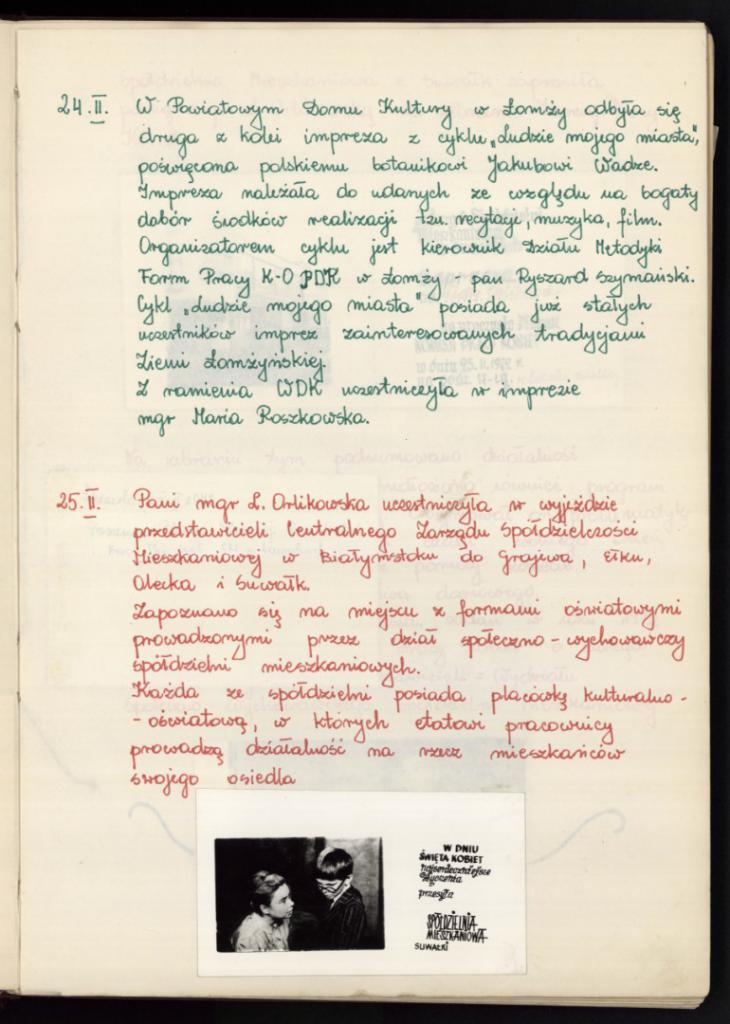 24.II. W Powiatowym Domu Kultury w Łomży odbyła się
druga z kolei impreza z cyklu „Ludzie mojego miasta",
poświęcona polskiemu botanikowi Jakubowi Wadze.
Impreza należała do udanych ze względu na bogaty
dobór środków realizacji tzn. recytacje, muzyka, film.
Organizatorem cyklu jest kierownik Działu Metodyki
Form Pracy K-O PDK w Łomży - pan Ryszard Szymański.
Cykl „Ludzie mojego miasta" posiada już stałych
uczestników imprez zainteresowanych tradycjami
Ziemi Łomżyńskiej.
Z ramienia WDK uczestniczyła w imprezie
mgr Maria Roszkowska.
25.II. Pani mgr L. Orlikowska uczestniczyła w wyjeździe
przedstawicieli Centralnego Zarządu Spółdzielczości
Mieszkaniowej w Białymstoku do Grajewa, Ełku,
Olecka i Suwałk.
Zapoznano się na miejscu z formami oświatowymi
prowadzonymi przez dział społeczno - wychowawczy
spółdzielni mieszkaniowych.
Każda ze spółdzielni posiada placówkę kulturalno -
- oświatową, w których etatowi pracownicy
prowadzą działalność na rzecz mieszkańców
swojego osiedla
W DNIU
ŚWIĘTA KOBIET
najserdeczniejsze
życzenia
przesyła
SPÓŁDZIELNIA
MIESZKANIOWA
SUWAŁKI